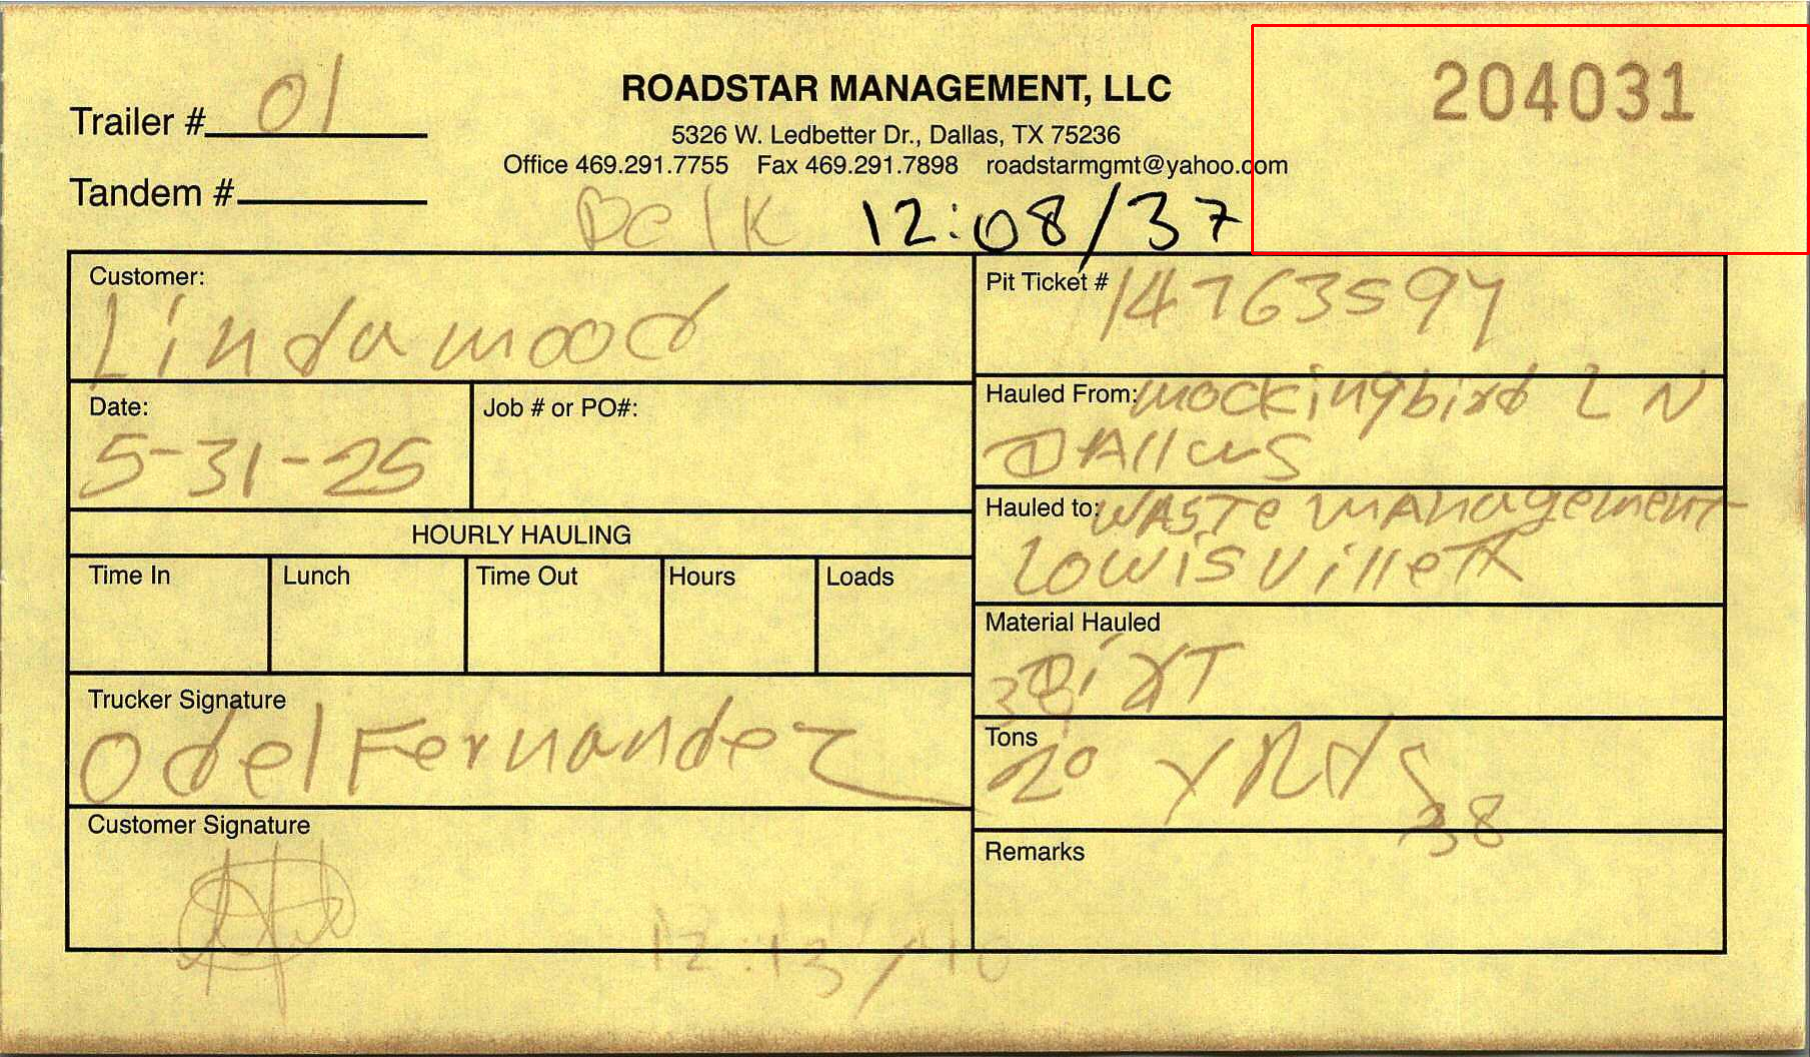 204031
Trailer # 01
ROADSTAR MANAGEMENT, LLC
5326 W. Ledbetter Dr., Dallas, TX 75236
Office 469.291.7755 Fax 469.291.7898 roadstarmgmt@yahoo.com
Tandem #
12:08/37
Customer:
Lindamood
Pit Ticket # 14763594
Date:
5-31-25
Job # or PO#:
Hauled From: mockingbird LN
DAllas
HOURLY HAULING
Hauled to: WASTe mANagement
Lowisville TX
Time In
Lunch
Time Out
Hours
Loads
Material Hauled
DirT
Trucker Signature
Odel Fernandez
Tons
20 YRds
38
Customer Signature
Remarks